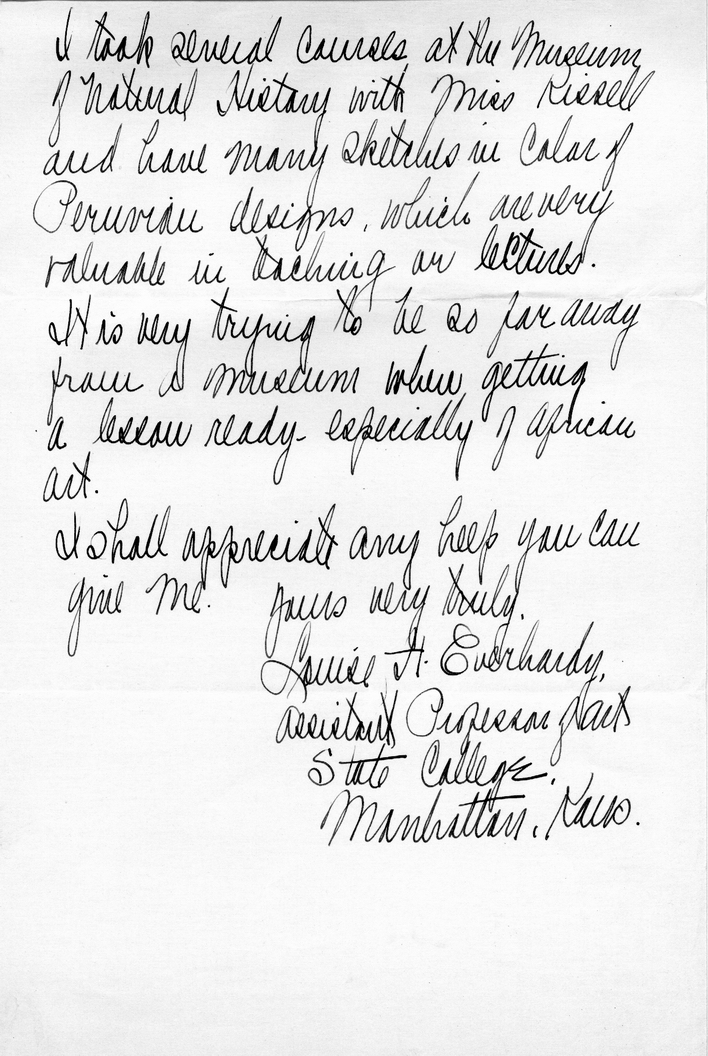 I took several courses at the Museum
of Natural History with Miss Kissell
and have many sketches in Color of
Peruvian designs, which are very
valuable in teaching or lectures.
It is very trying to be so far away
from a museum when getting
a lesson ready- especially of African
art.
I shall appreciate any help you can
give me. yours very truly,
Louise H. Everhardy,
Assistant Professor of Art
State College,
Manhattan, Kans.